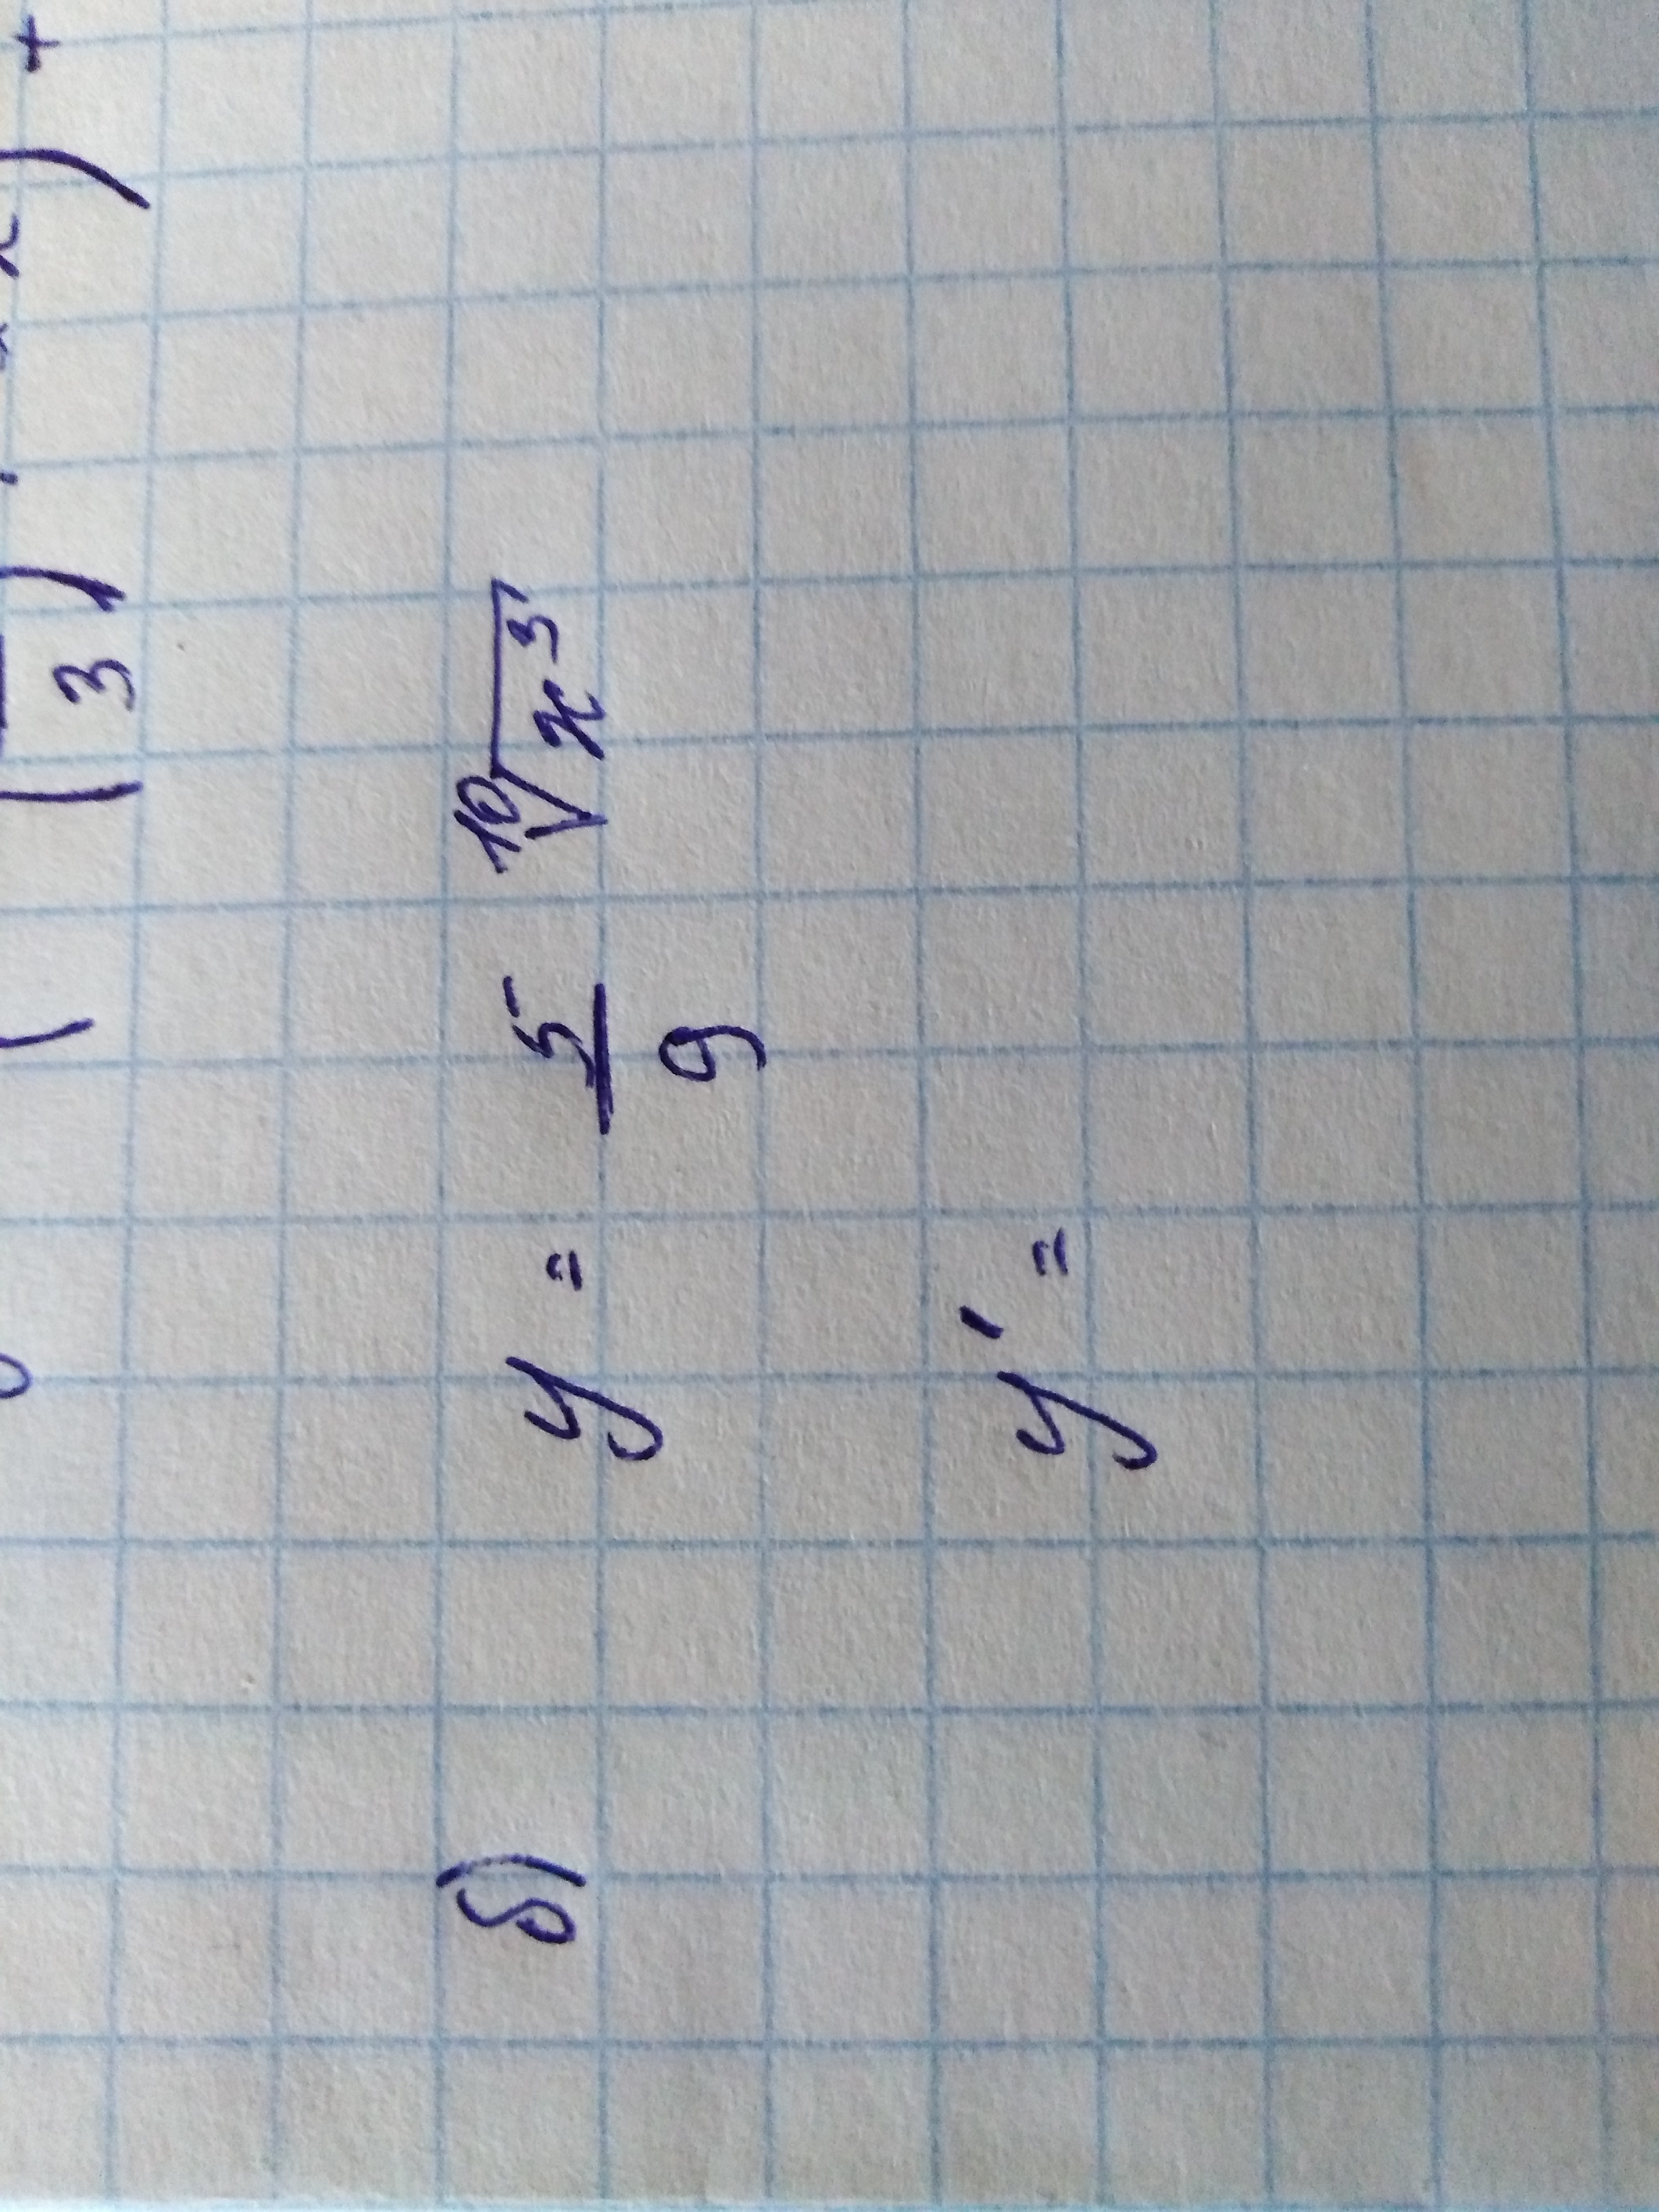 ( 3 ) · ) +
б) y = 5/9 ¹⁰√x³
y' =